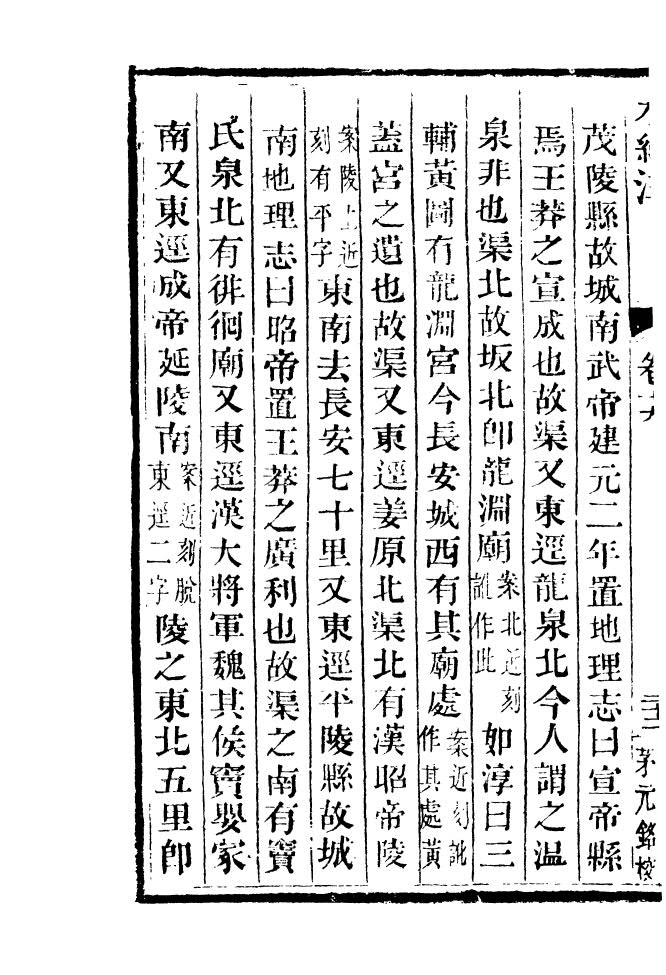 水經注 卷 茅元銘校
茂陵縣故城南武帝建元二年置地理志曰宣帝縣
焉王莽之宣成也故渠又東逕龍泉北今人謂之温
泉非也渠北故坂北即龍淵廟案北近刻訛作此如淳曰三
輔黃圖有龍淵宮今長安城西有其廟處案近刻訛作其處黃
蓋宮之遺也故渠又東逕姜原北渠北有漢昭帝陵
案陵上近刻有平字東南去長安七十里又東逕平陵縣故城
南地理志曰昭帝置王莽之廣利也故渠之南有竇
氏泉北有徘徊廟又東逕漢大將軍魏其侯竇嬰家
南又東逕成帝延陵南案近刻脫東逕二字陵之東北五里即